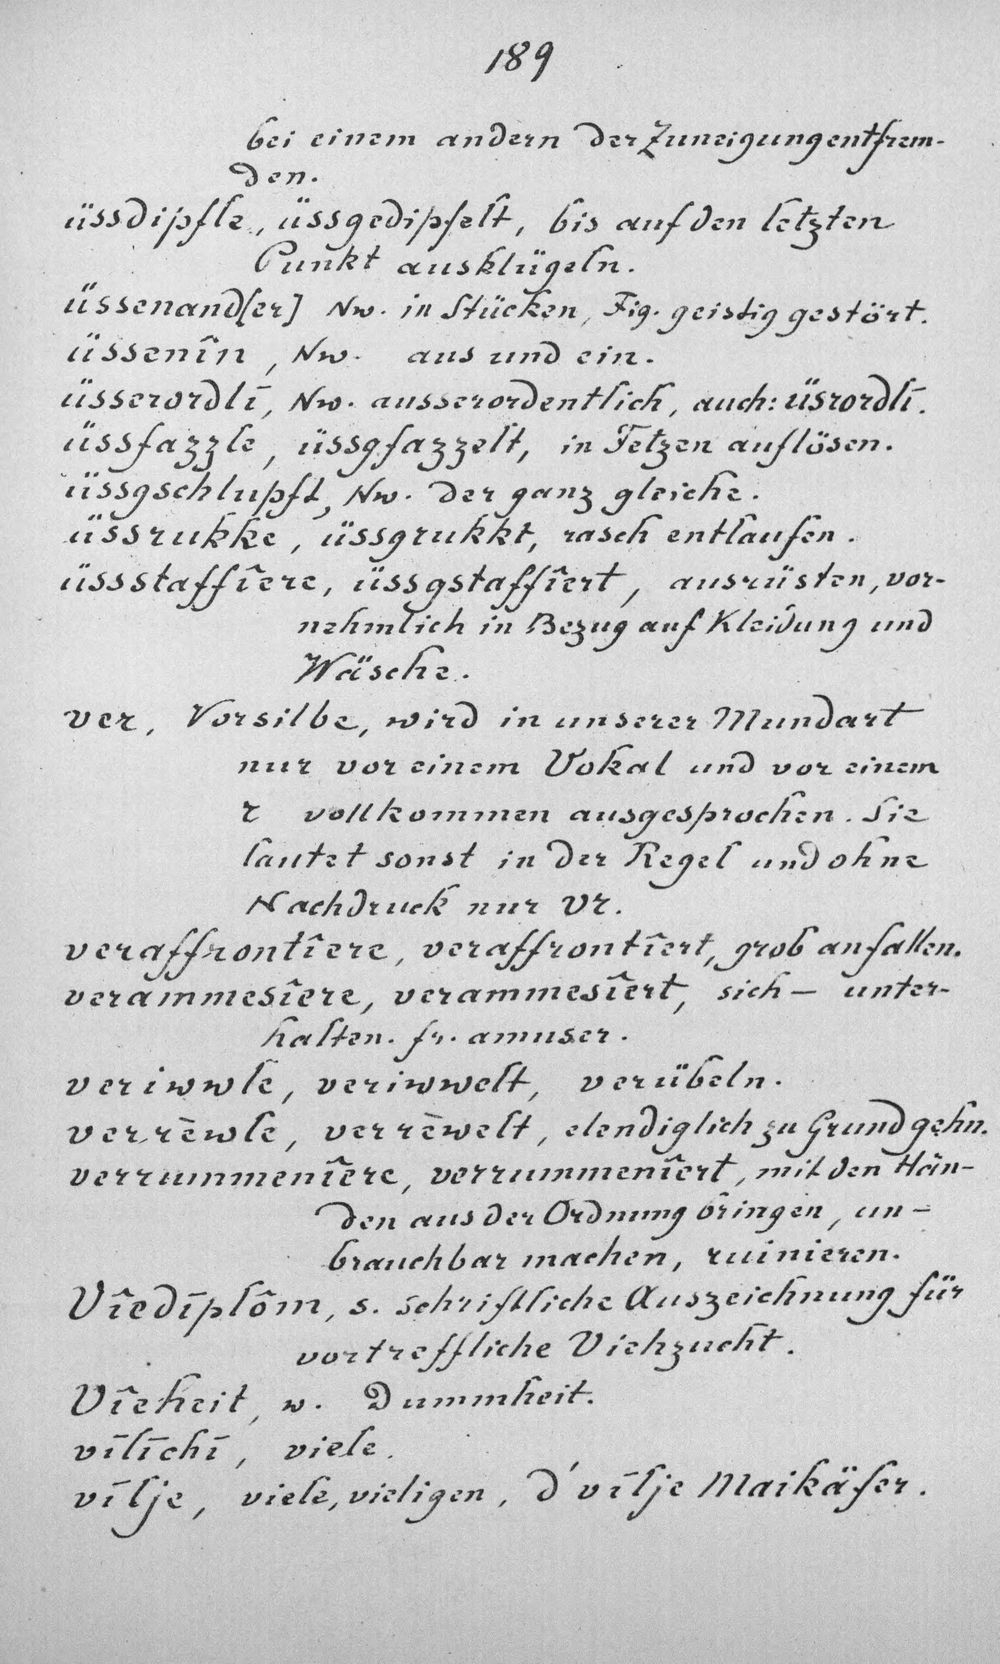 189
bei einem andern der Zuneigung entfrem-
den.
üssdipfle, üssgedipfelt, bis auf den letzten
Punkt ausklügeln.
üssenand[er] Nw. in Stücken, Fig. geistig gestört.
üssenîn, Nw. aus und ein.
üsserordlī, Nw. ausserordentlich, auch: üsrordlī.
üssfazzle, üssgfazzelt, in Fetzen auflösen.
üssgschlupft, Nw. der ganz gleiche.
üssrukke, üssgrukkt, rasch entlaufen.
üssstaffîere, üssgstaffîert, ausrüsten, vor-
nehmlich in Bezug auf Kleidung und
Wäsche.
ver, Vorsilbe, wird in unserer Mundart
nur vor einem Vokal und vor einem
r vollkommen ausgesprochen. Sie
lautet sonst in der Regel und ohne
Nachdruck nur vr.
veraffrontîere, veraffrontîert, grob anfallen.
verammesîere, verammesîert, sich — unter-
halten. fr. amuser.
veriwwle, veriwwelt, verübeln.
verrēwle, verrēwelt, elendiglich zu Grund gehn.
verrummenîere, verrummenîert, mit den Hän-
den aus der Ordnung bringen, un-
brauchbar machen, ruinieren.
Vîedīplôm, s. schriftliche Auszeichnung für
vortreffliche Viehzucht.
Vîeheit, w. Dummheit.
vīlīchī, viele.
vīlje, viele, vieligen, d'vīlje Maikäfer.